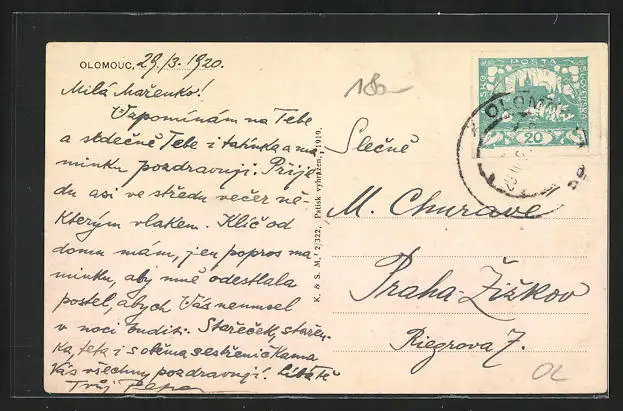 OLOMOUC, 29/3. 1920.
Milá Mařenko!
Vzpomínám na Tebe
a srdečně Tebe i tatínka a ma
minku pozdravuji. Přijed
du asi ve středu večer ně-
kterým vlakem. Klíč od
domu mám, jen popros ma
minku, aby mně odestlala
postel, abych Vás nemusel
v noci budit. Stařeček, stařen-
ka, teta i s oběma sestřeničkama
Vás všechny pozdravují! Líbá Tě
Tvůj Pepa
K. & S. M. 2/322. Patisk vyhrazen. 1919.
180-
POŠTA
ČESKO
SLOVENSKÁ
20
OLOMOUC
Slečně
M.
Praha-Žižkov
Riegrova 7.
OL